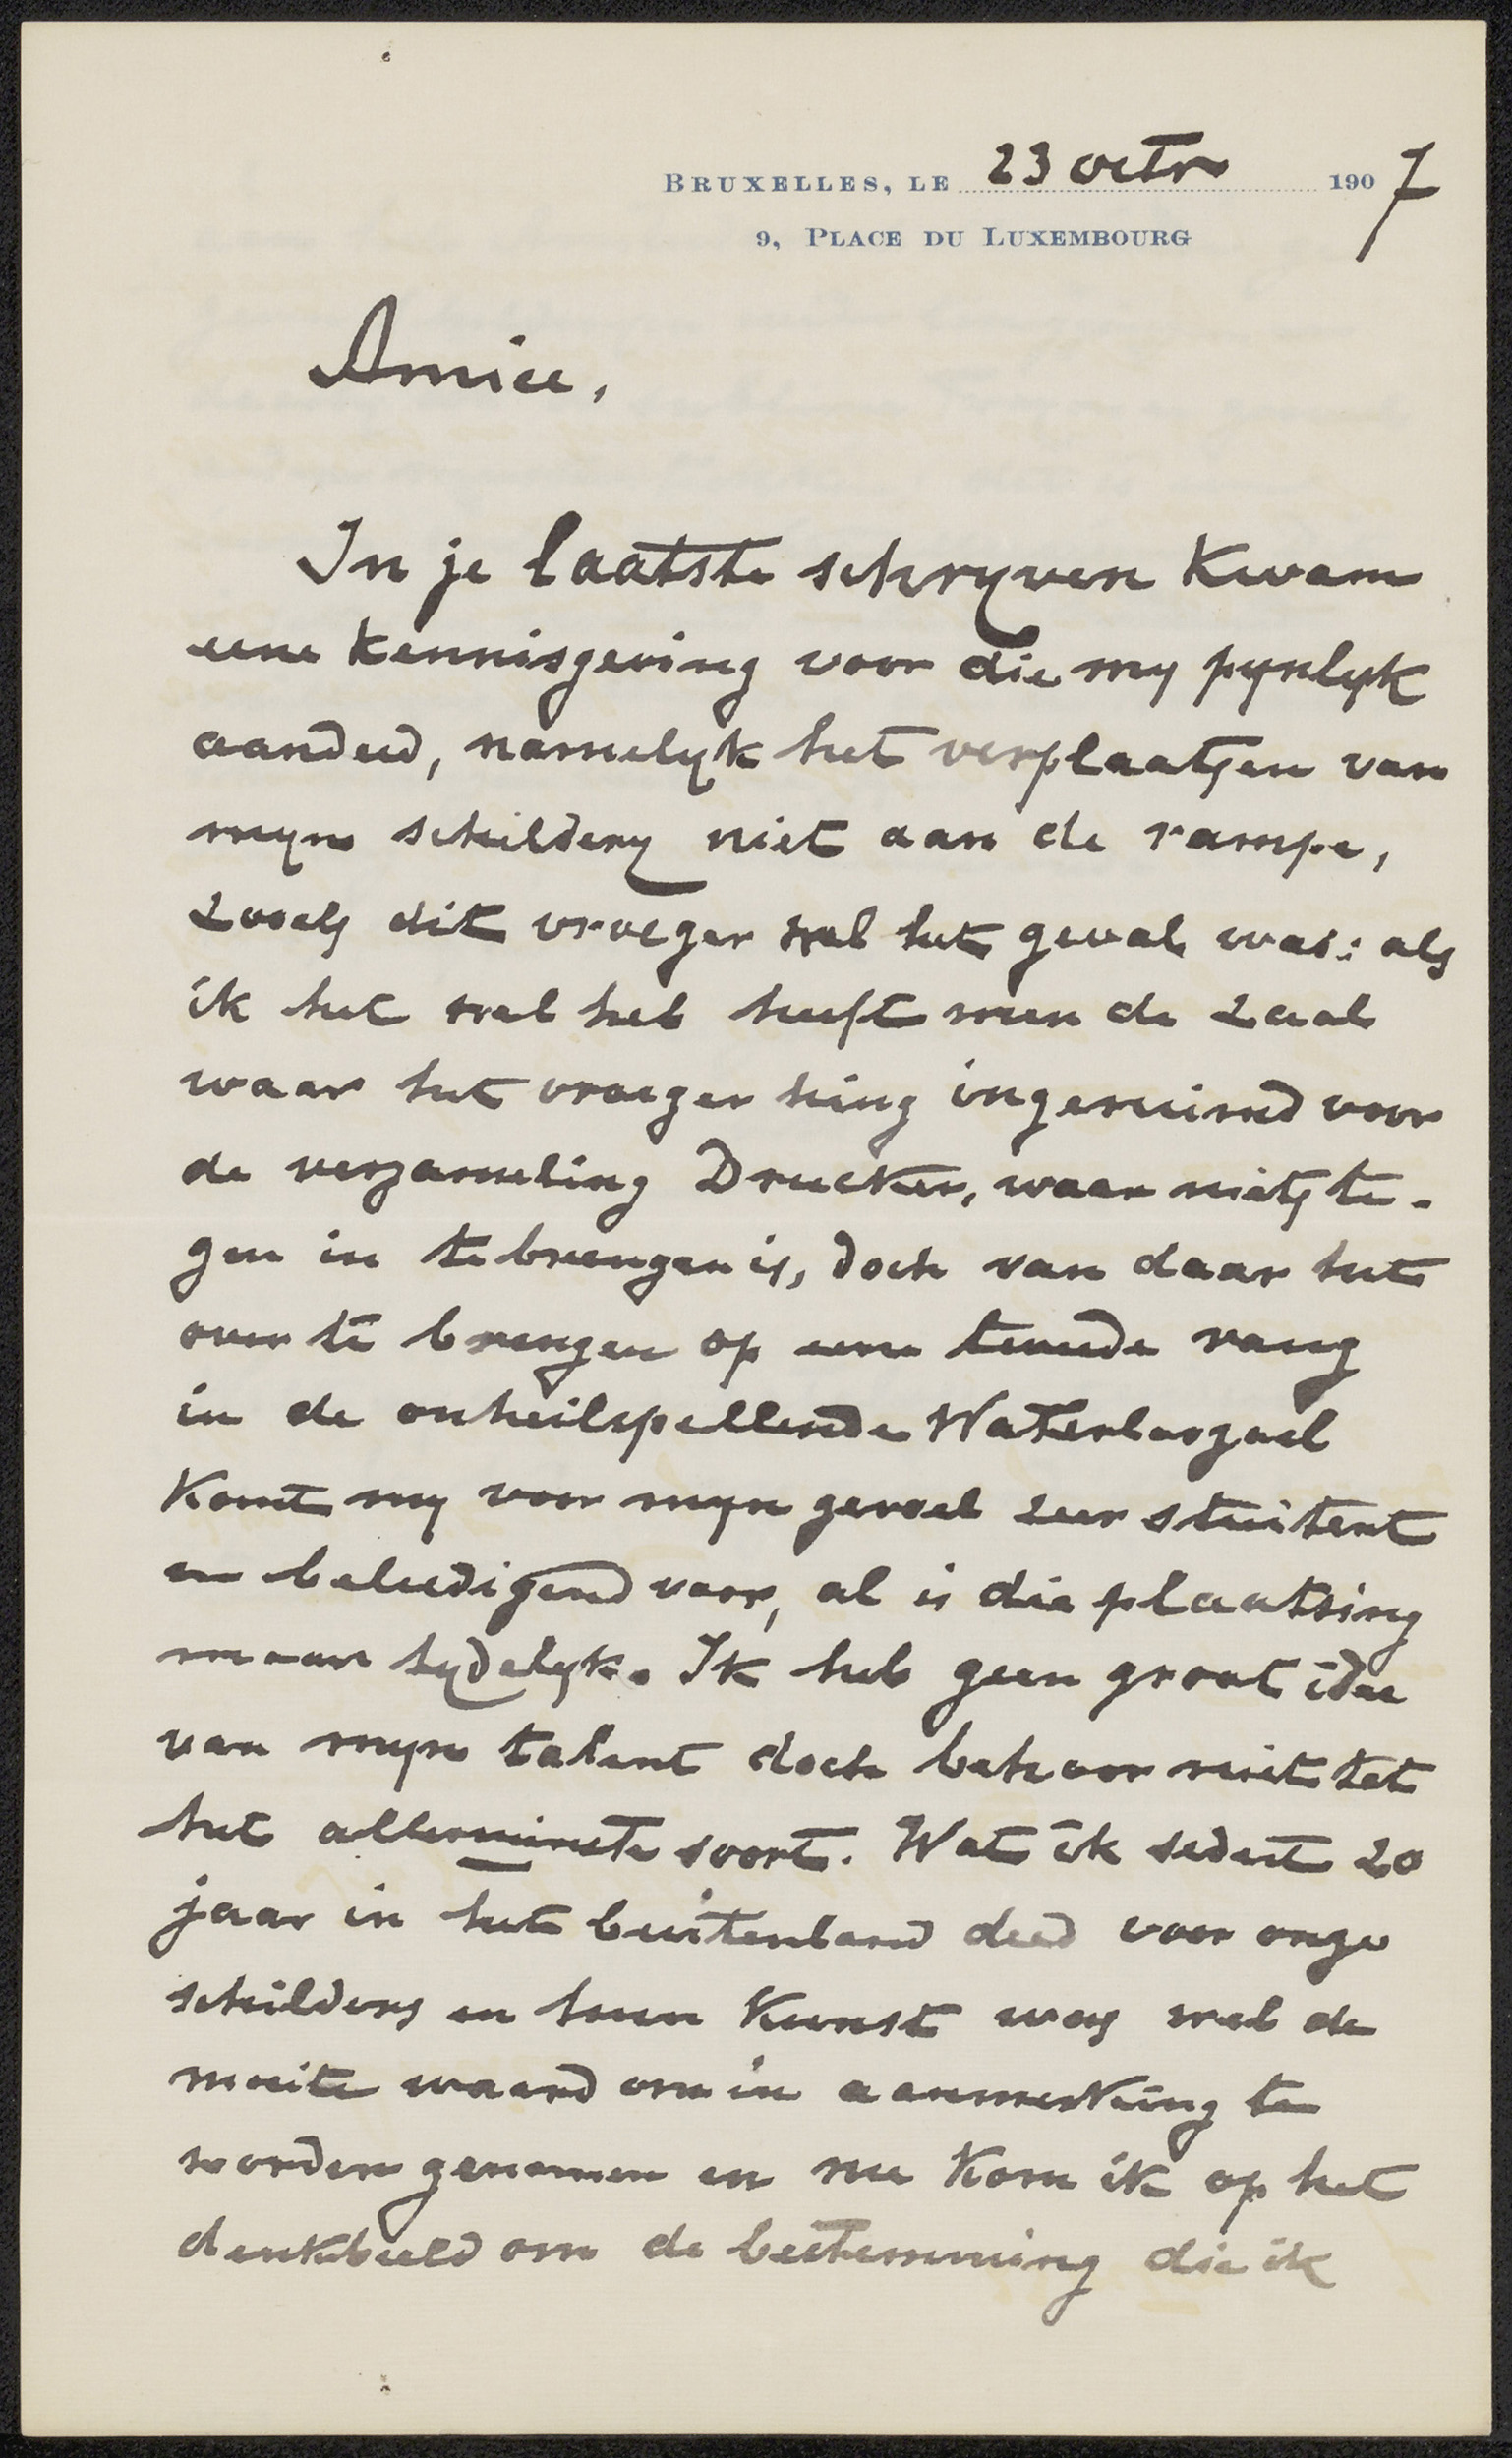 BRUXELLES, LE 23 octr 1907
9, PLACE DU LUXEMBOURG
Amice,
In je laatste schryven kwam
eene kennisgeving voor die my pynlyk
aandeed, namelyk het verplaatsen van
myn schildery niet aan de rampe,
zooals dit vroeger wel het geval was: als
ik het wel heb heeft men de zaal
waar het vroeger hing ingeruimd voor
de verzameling Drucker, waar niets te-
gen in te brengen is, doch van daar het
over te brengen op eene tweede rang
in de onheilspellende Waterloozaal
komt my voor myn gevoel zeer stuitent
en beleedigend voor, al is die plaatsing
maar tydelyk. Ik heb geen groot idee
van myn talent doch behoor niet tot
het allerminste soort. Wat ik sedert 20
jaar in het buitenland deed voor onze
schilders en hun kunst was wel de
moeite waard om in aanmerking te
worden genomen en nu kom ik op het
denkbeeld om de bestemming die ik